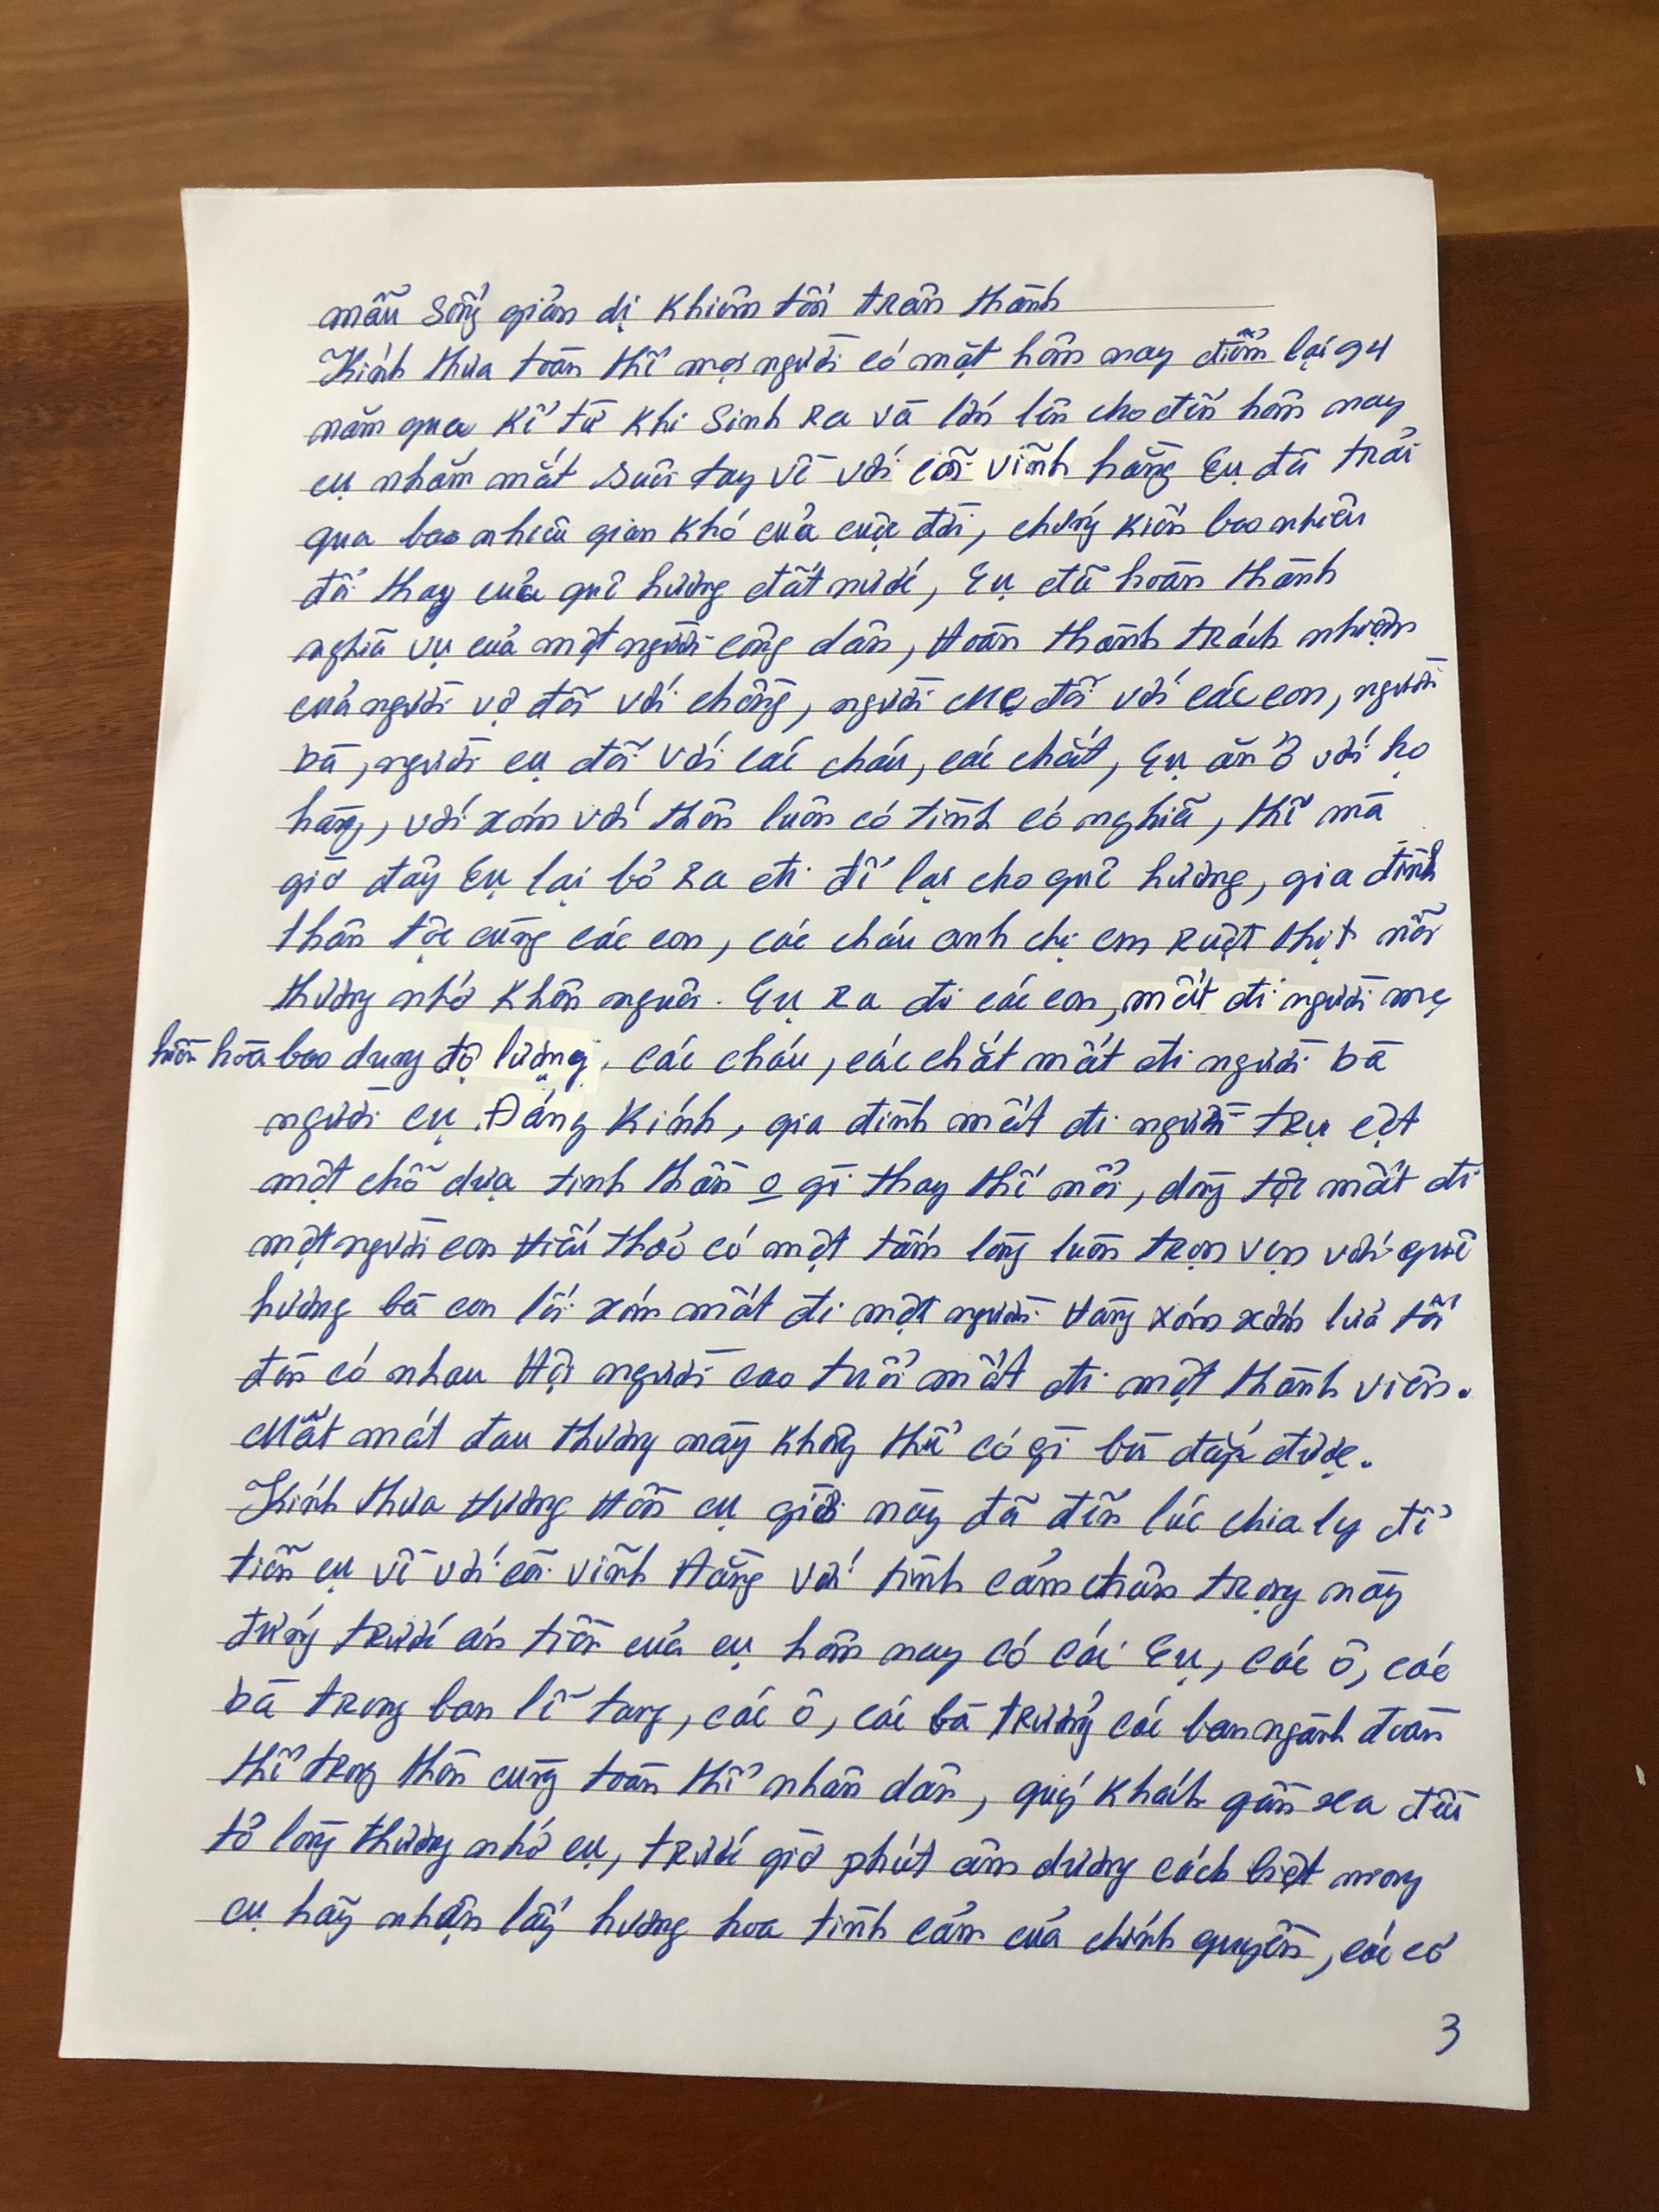 mẫu sống giản dị khiêm tốn trân thành
Kính thưa toàn thể mọi người có mặt hôm nay điểm lại 94
năm qua kể từ khi sinh ra và lớn lên cho đến hôm nay
cụ nhắm mắt suôi tay về với cõi vĩnh hằng Cụ đã trải
qua bao nhiêu gian khó của cuộc đời, chứng kiến bao nhiêu
đổi thay của quê hương đất nước, Cụ đã hoàn thành
nghĩa vụ của một người công dân, Hoàn thành trách nhiệm
của người vợ đối với chồng, người Mẹ đối với các con, người
bà, người cụ đối với các cháu, các chắt, Cụ ăn ở với họ
hàng, với xóm với thôn luôn có tình có nghĩa, thế mà
giờ đây Cụ lại bỏ ra đi để lại cho quê hương, gia đình
thân tộc cùng các con, các cháu anh chị em ruột thịt nỗi
thương nhớ khôn nguôi. Cụ ra đi các con, mất đi người mẹ
hiền hòa bao dung độ lượng, các cháu, các chắt mất đi người bà
người cụ Đáng Kính, gia đình mất đi người trụ cột
một chỗ dựa tinh thần o gì thay thế nổi, dòng tộc mất đi
một người con Hiếu thảo có một tấm lòng luôn trọn vẹn với quê
hương bà con lối xóm mất đi một người Hàng xóm xớm lửa tối
đèn có nhau Hội người cao tuổi mất đi một thành viên.
Mất mát đau thương này không thể có gì bù đắp được.
Kính thưa Hương Hồn cụ giờ này đã đến lúc chia ly để
tiễn cụ về với cõi vĩnh Hằng với tình cảm chân trọng này
đứng trước án tiền của cụ hôm nay có các Cụ, các ô, các
bà trong ban lễ tang, các ô, các bà trưởng các ban ngành đoàn
thể trong thôn cùng toàn thể nhân dân, quý khách gần xa đều
tỏ lòng thương nhớ cụ, trước giờ phút âm dương cách biệt mong
cụ hãy nhận lấy hương hoa tình cảm của chính quyền, các cơ
3